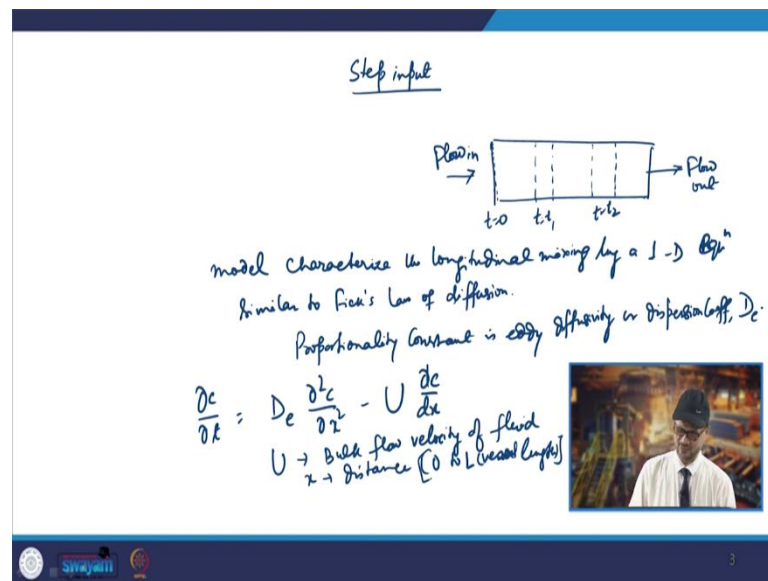 Step input
Flow in
Flow out
t=0 t=t₁ t=t₂
model characterize the longitudinal mixing by a 1-D Eqⁿ
Similar to Fick's Law of diffusion.
Proportionality Constant is eddy diffusivity or dispersion Coeff, De.
∂c/∂t = De ∂²c/∂x² - U dc/dx
U → Bulk flow velocity of fluid
x → distance [0 to L (vessel length)]
swayam
3